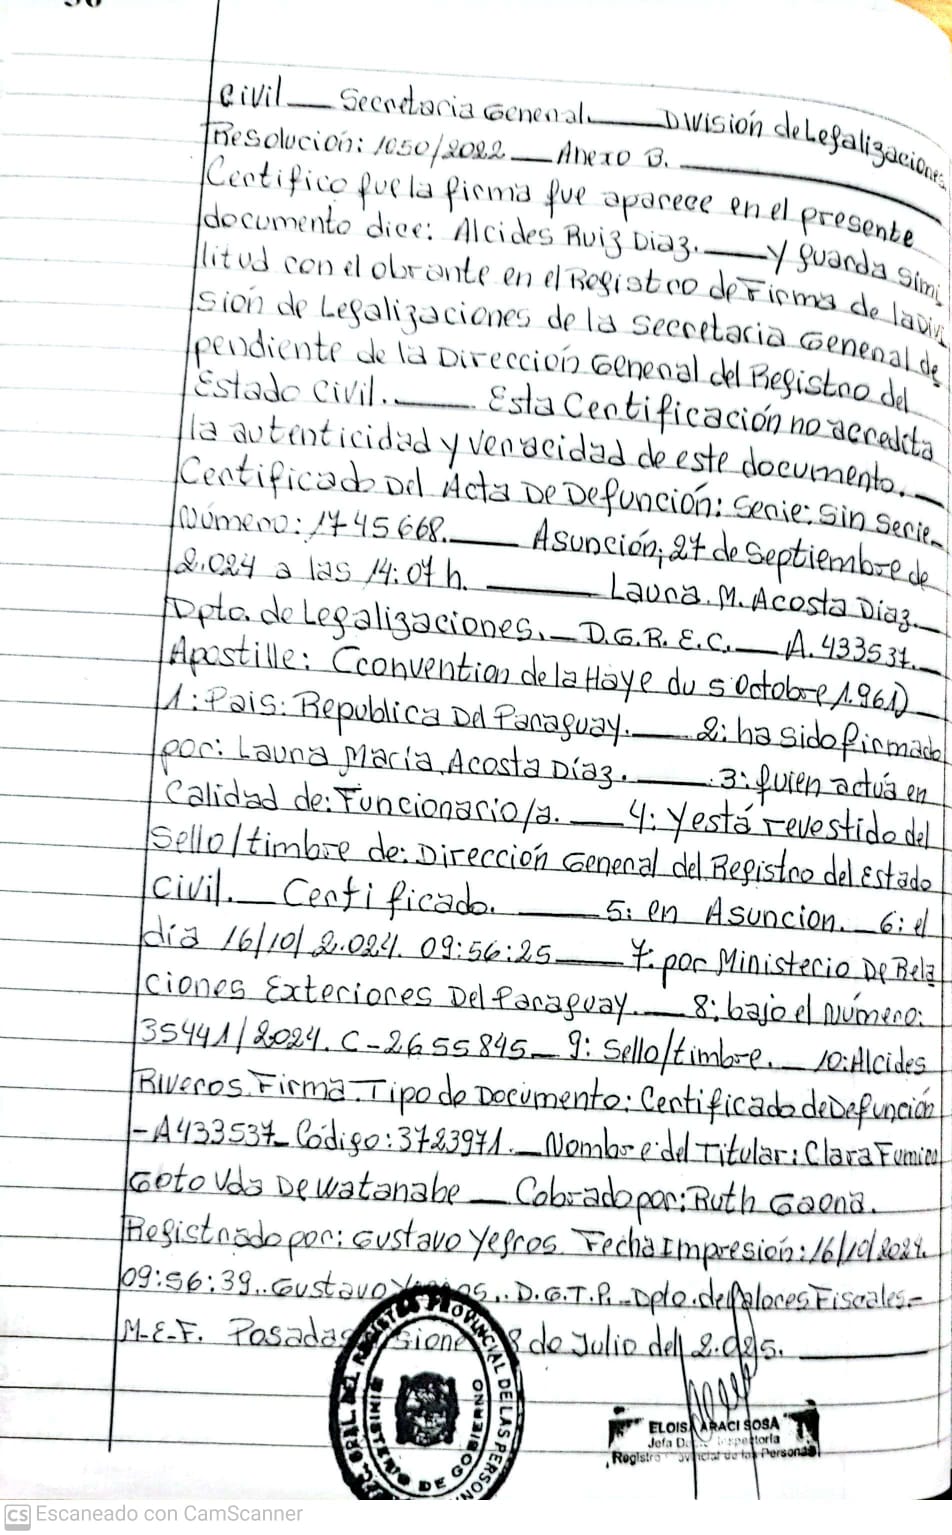 civil — Secretaria General. — División de Legalizaciones
Resolución: 1050/2022 — Anexo B. —
Certifico que la firma que aparece en el presente
documento dice: Alcides Ruiz Diaz. — y guarda simi
litud con el obrante en el Registro de Firma de la Divi
sión de Legalizaciones de la Secretaria General de
pendiente de la Dirección General del Registro del
Estado Civil. — Esta Certificación no acredita
la autenticidad y veracidad de este documento. —
Certificado Del Acta De Defunción: Serie: Sin Serie —
Número: 1745668. — Asunción, 27 de Septiembre de
2.024 a las 14:07 h. — Laura. M. Acosta Díaz. —
Dpto. de Legalizaciones. — D.G.R.E.C. — A. 433537. —
Apostille: (Cconvention de la Haye du 5 Octobre 1.961) —
1: Pais: Republica Del Paraguay. — 2: ha sido firmado
por: Laura María Acosta Díaz. — 3: quien actúa en
Calidad de: Funcionario/a. — 4: Y está revestido del
Sello/timbre de: Dirección General del Registro del Estado
Civil. — Certificado. — 5: en Asuncion. — 6: el
dia 16/10/2.024. 09:56:25 — 7: por Ministerio De Rela
ciones Exteriores Del Paraguay. — 8: bajo el Número:
35441/2024. C-2655845 — 9: Sello/timbre. — 10: Alcides
Riveros. Firma. Tipo de Documento: Certificado de Defunción
- A433537 — Código: 3723971. — Nombre del Titular: Clara Fumico
Goto Vda De Watanabe — Cobrado por: Ruth Gaona.
Registrado por: Gustavo Yegros. Fecha Impresión: 16/10/2024.
09:56:39. Gustavo Yegros. D.G.T.P. Dpto. de Valores Fiscales. -
M-E-F. Posadas 8 de Julio del 2.025. —
REGISTRO PROVINCIAL DE LAS PERSONAS
MINISTERIO DE GOBIERNO
ELOISA ARACI SOSA
Jefa Inspectoria
Registro Provincial de las Personas
CS Escaneado con CamScanner